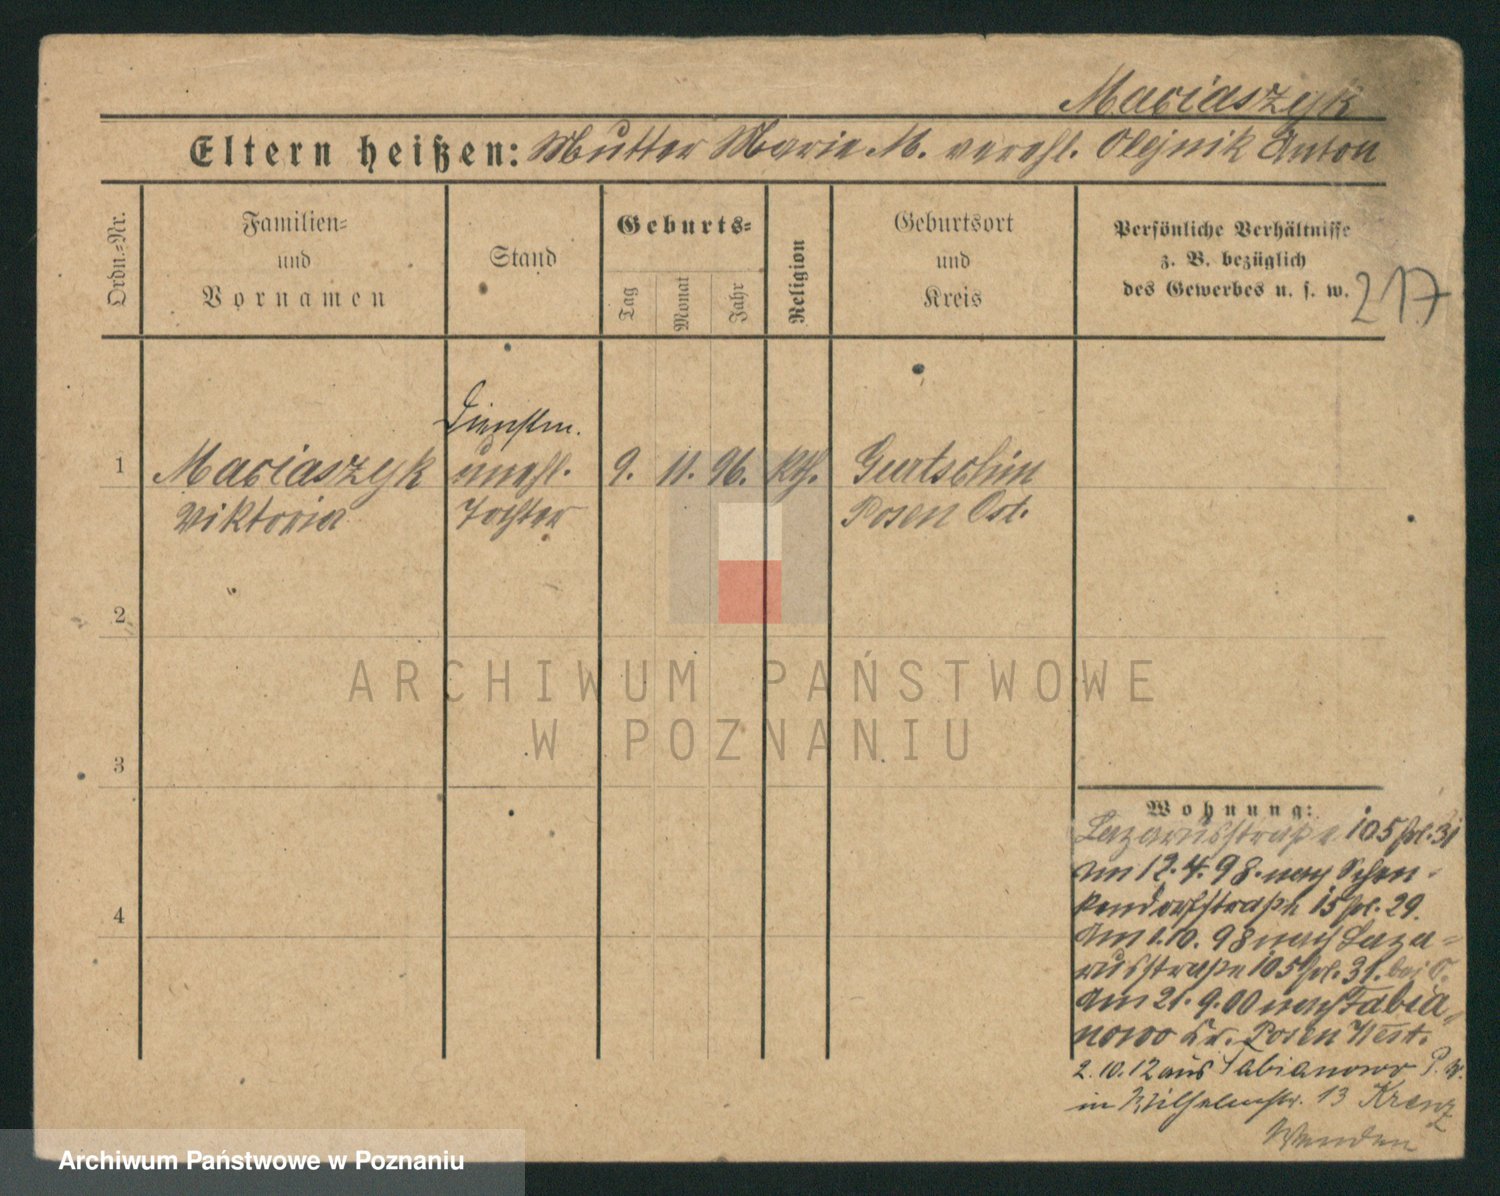 Maciaszyk
Eltern heißen: Mutter Marie M. verehl. Olejnik Anton
Ordn.=Nr.
Familien=
und
Vornamen
Stand
Geburts=
Tag
Monat
Jahr
Religion
Geburtsort
und
Kreis
Persönliche Verhältnisse
z. B. bezüglich
des Gewerbes u. s. w.
217
Dienstm.
1 Maciaszyk unehl. 9. 11. 96. Kth. Gurtschin
Viktoria Tochter Posen Ost.
2
ARCHIWUM PAŃSTWOWE
W POZNANIU
3
Wohnung:
Lazarusstraße 105 pol. 31
Am 12.4.98. nach Schen-
kendorfstraße 15 pol. 29.
4
Am 1.10.98 nach Laza=
russtraße 105 pol. 31. bei O.
Am 21.9.00 nach Fabia=
nowo Kr. Posen West.
2.10.12 aus Fabianowo P. W.
in Wilhelmstr. 13 Krenz
Wenden
Archiwum Państwowe w Poznaniu